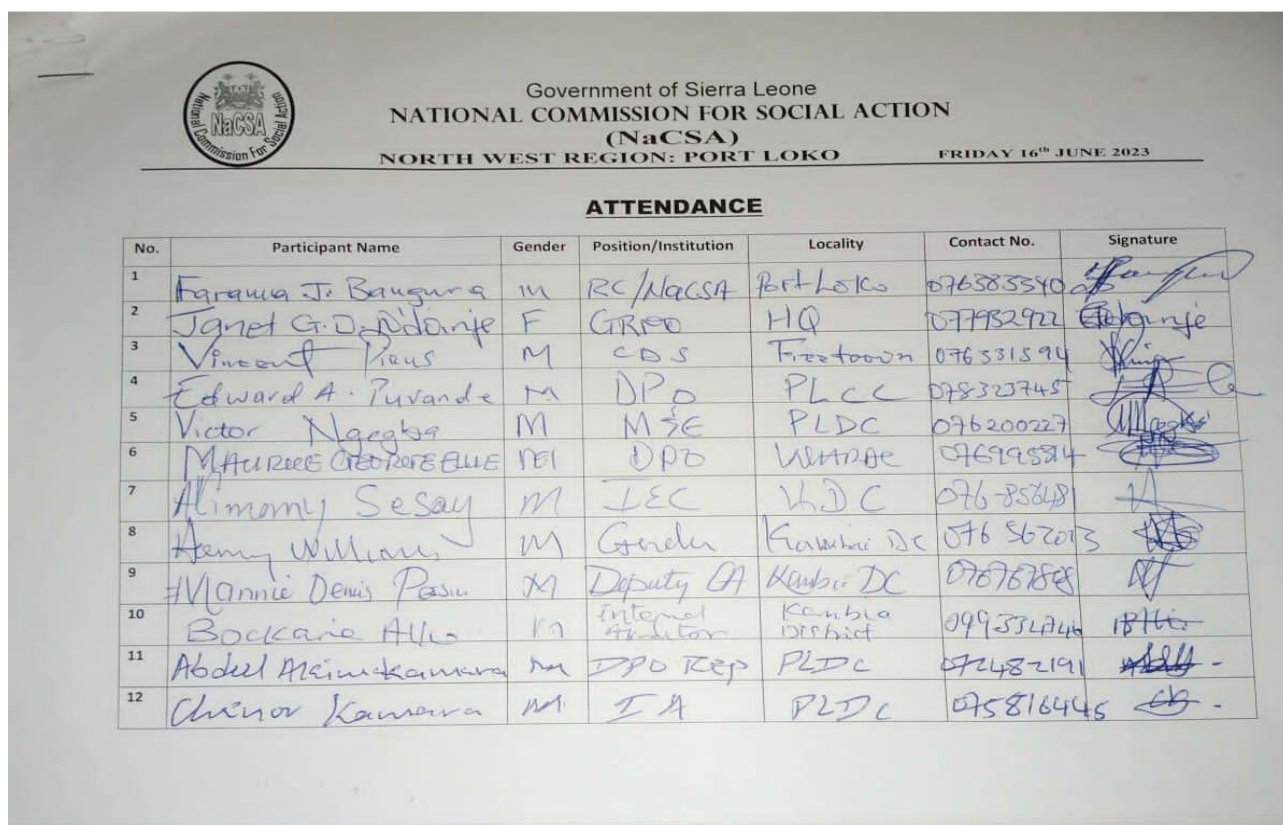 National Commission For Social Action
NaCSA
Government of Sierra Leone
NATIONAL COMMISSION FOR SOCIAL ACTION
(NaCSA)
NORTH WEST REGION: PORT LOKO FRIDAY 16th JUNE 2023
ATTENDANCE
No. Participant Name Gender Position/Institution Locality Contact No. Signature
1 Farama J. Bangura M RC/NaCSA Port Loko
2 Janet G. F HQ 077932922
3 Vincent Pious M CDS Freetown 076531594
4 Edward A. Puvande M DPO PLCC 078323745
5 Victor Ngegba M M&E PLDC 076200227
6 M DPO
7 Alimamy Sesay M IEC KDC 076-85648
8 M Gender Kambia DC 076 562013
9 Mannie Denis M Deputy CA Kambia DC
10 Bockarie M Internal Auditor Kambia District
11 Abdul M DPO Rep PLDC 072482191
12 Chinor Kamara M IA PLDC 075816445